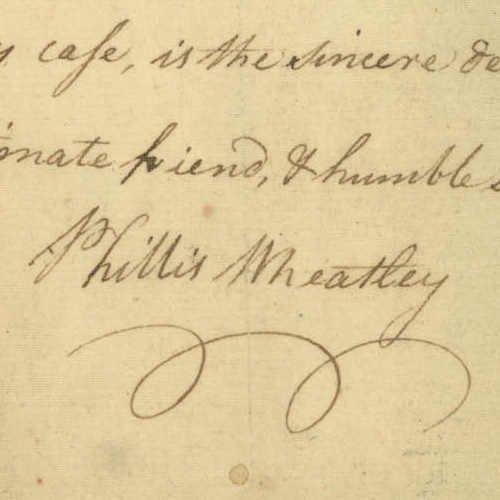 case, is the sincere de
nate friend, & humble s
Phillis Wheatley